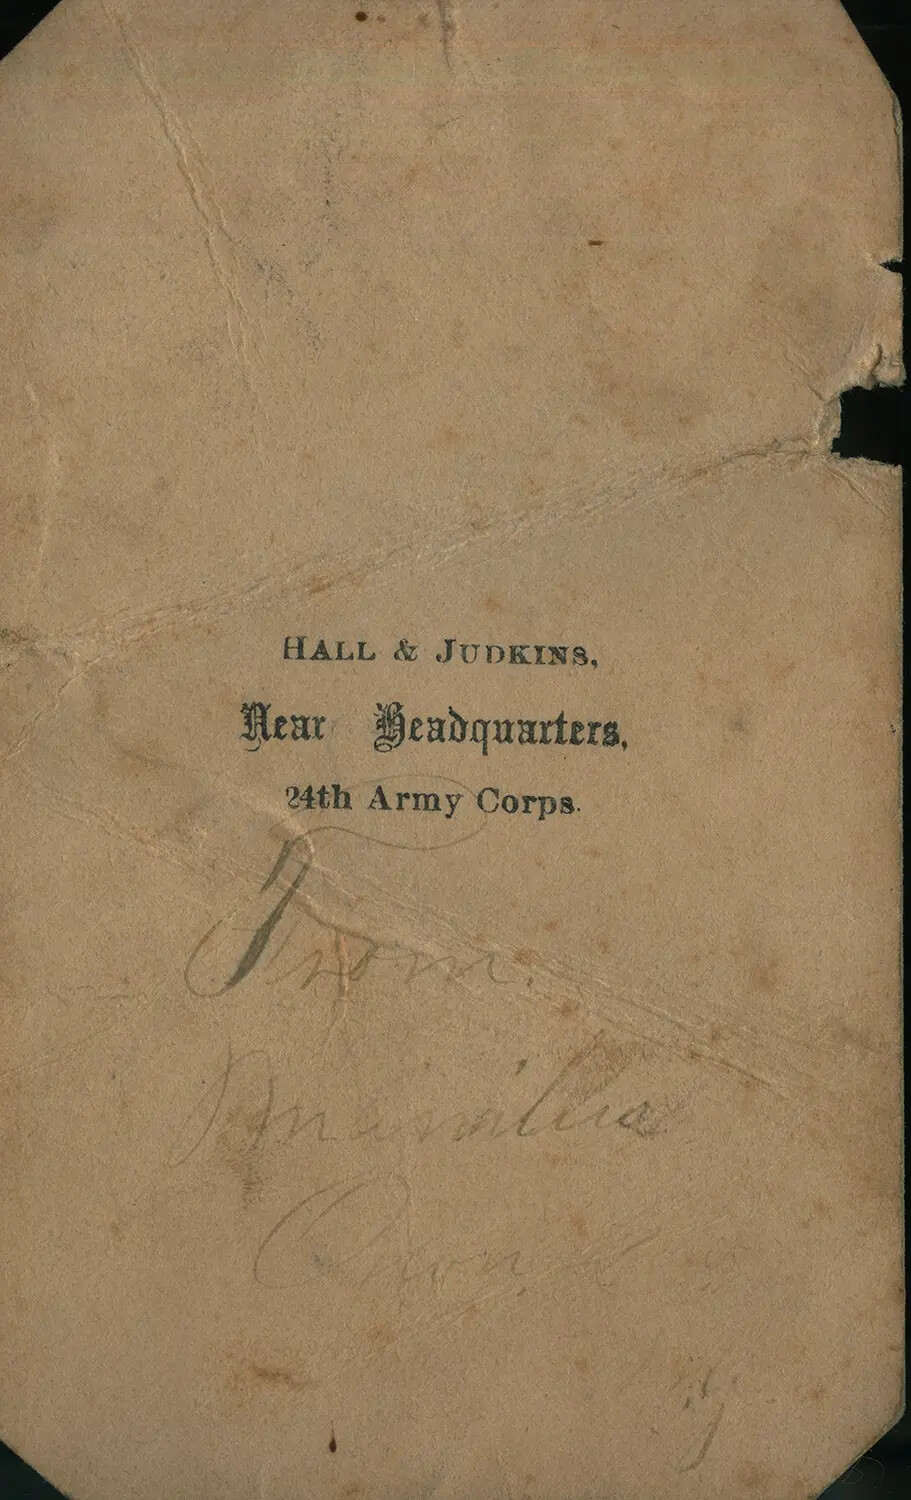 HALL & JUDKINS,
Near Headquarters,
24th Army Corps.
From